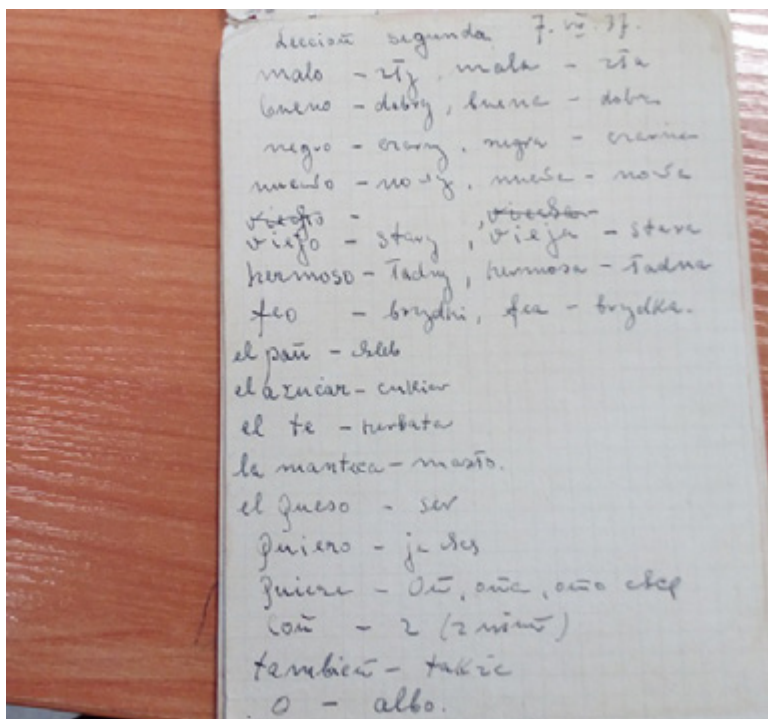 Leccioñ segunda 7. VII. 37.
malo - zły, mala - zła
bueno - dobry, buena - dobra
negro - czarny, negra - czarna
nuevo - nowy, nueva - nowa
viejo - stary, vieja - stara
hermoso - ładny, hermosa - ładna
feo - brzydki, fea - brzydka.
el pañ - chleb
el azucar - cukier
el te - herbata
la manteca - masło.
el queso - ser
quiero - ja chcę
quiere - Oñ, oña, oño chce
coñ - z (z nimi)
tambieñ - także
O - albo.